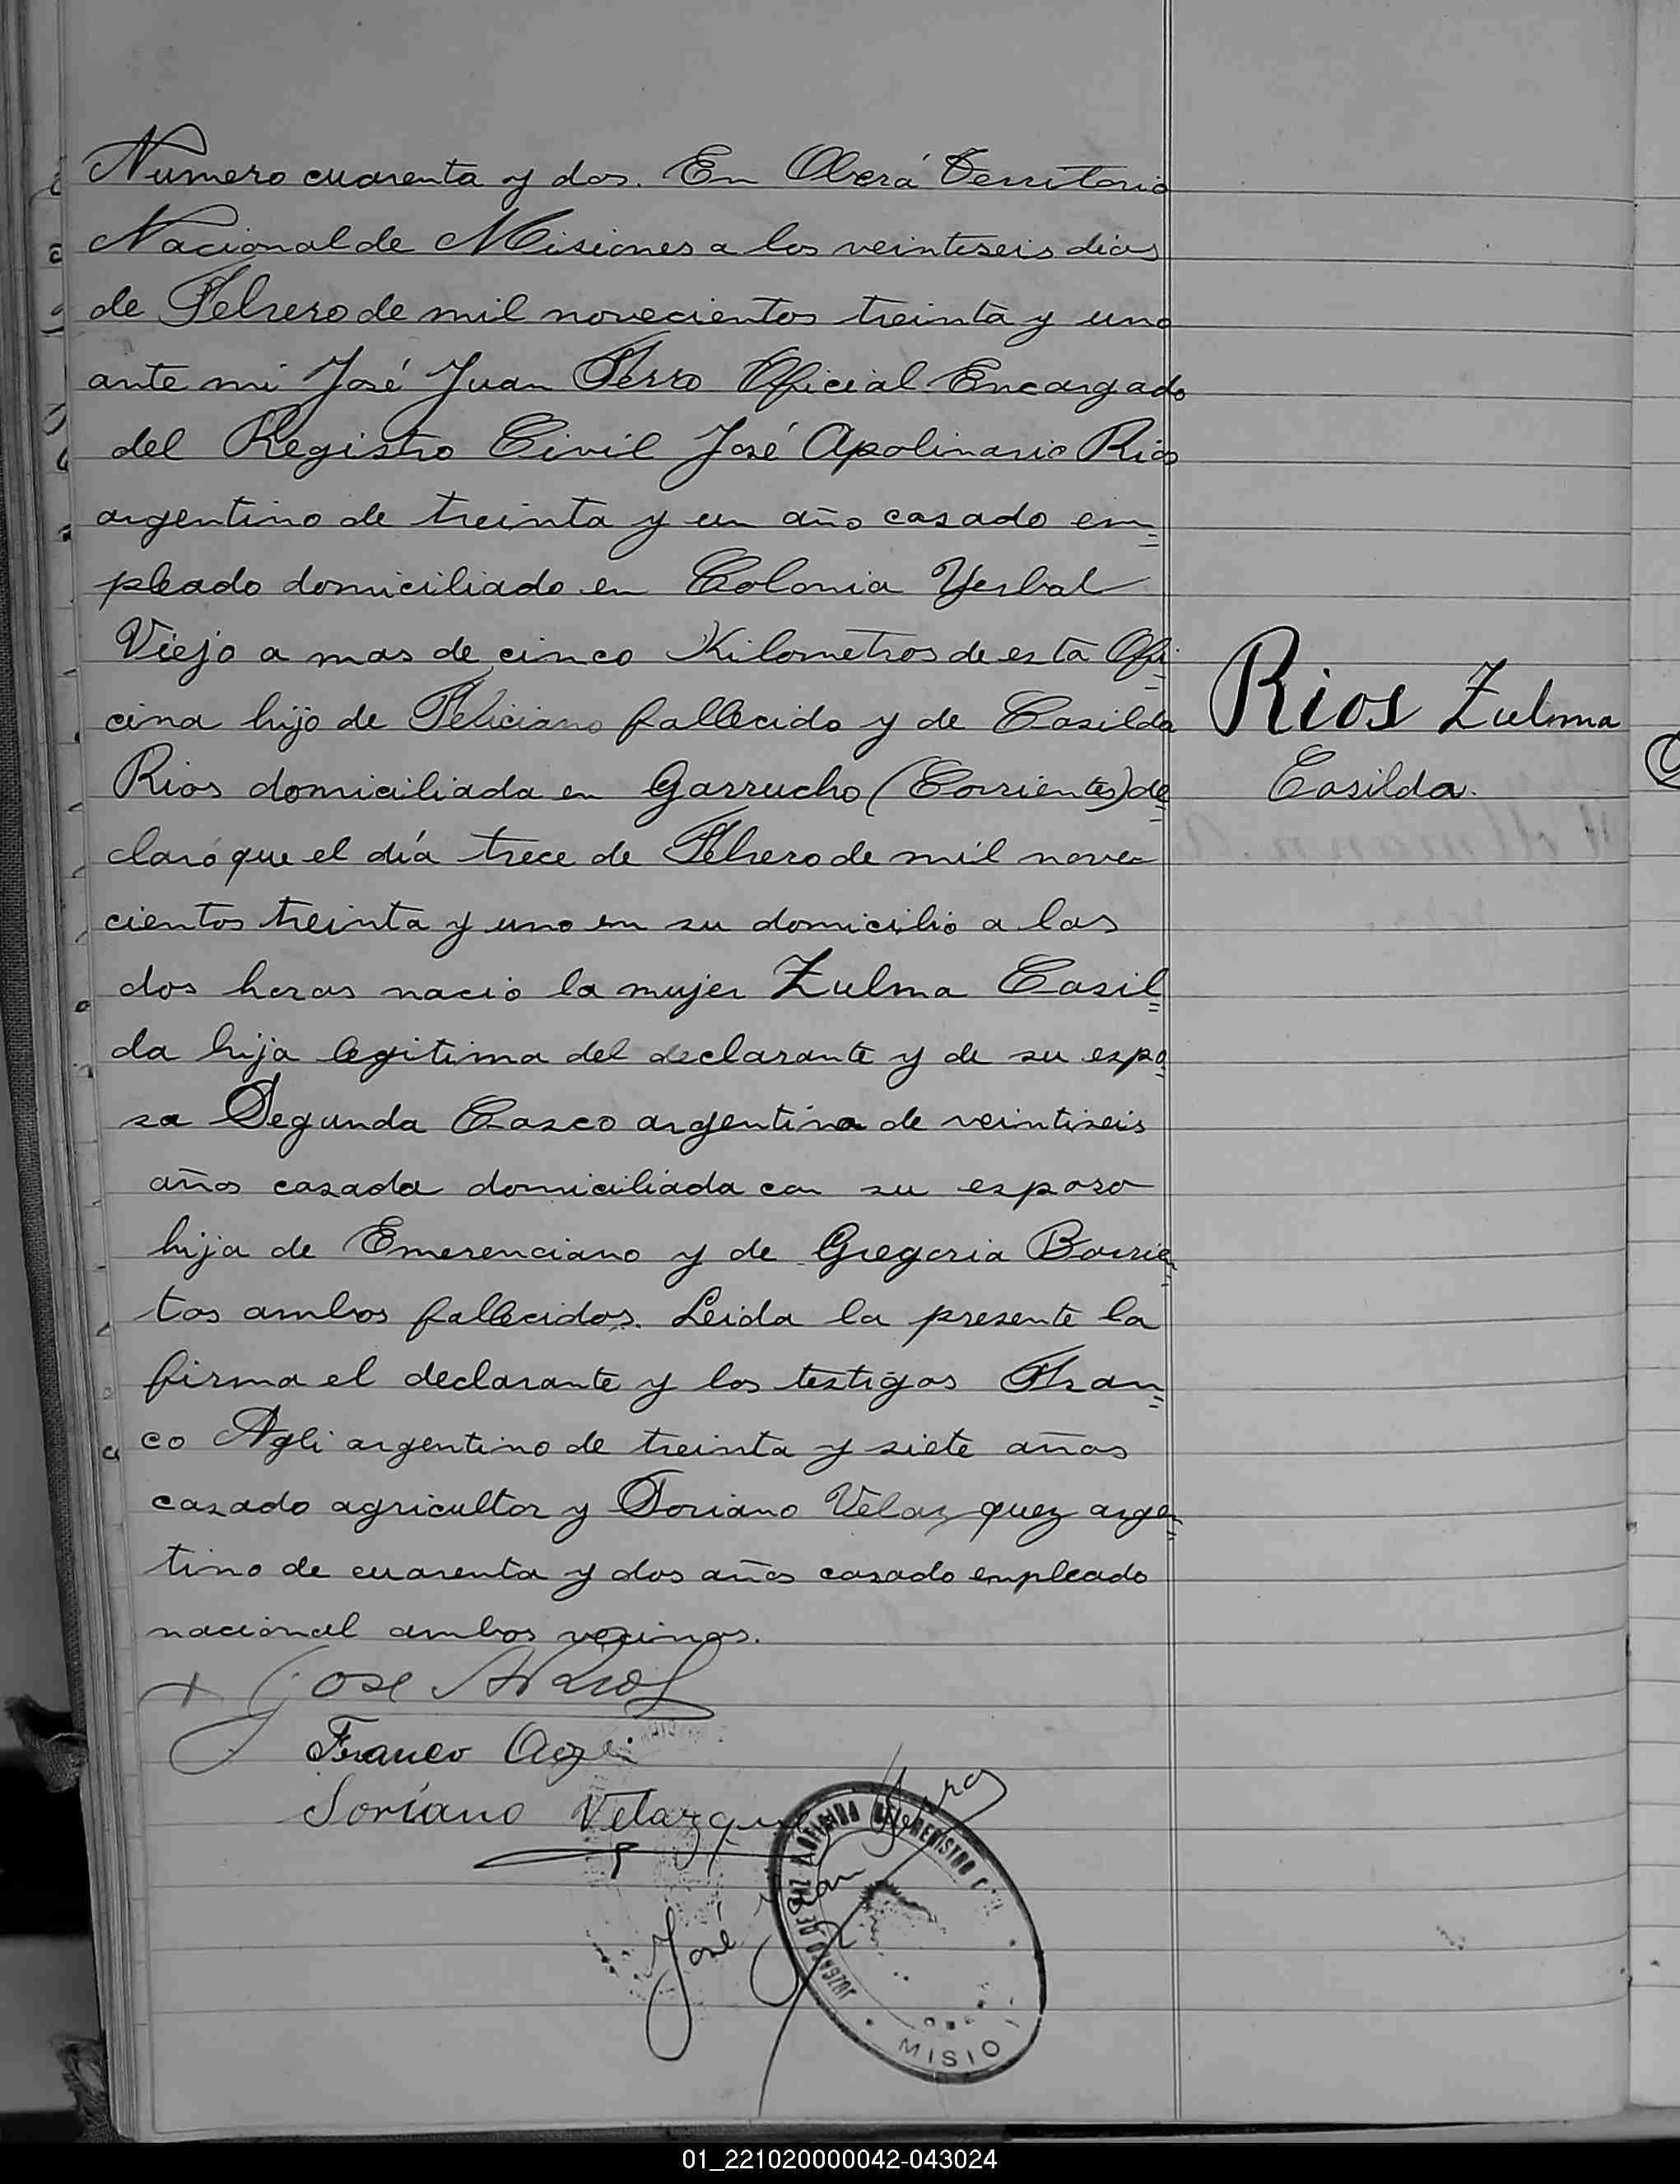 Numero cuarenta y dos. En Oberá Territorio
Nacional de Misiones a los veinteseis dias
de Febrero de mil novecientos treinta y uno
ante mi José Juan Ferro Oficial Encargado
del Registro Civil José Apolinario Rios
argentino de treinta y un año casado em=
pleado domiciliado en Colonia Yerbal
Viejo a mas de cinco Kilometros de esta Ofi=
cina hijo de Feliciano fallecido y de Casilda
Rios domiciliada en Garrucho (Corrientes) de=
claró que el día trece de Febrero de mil nove=
cientos treinta y uno en su domicilio a las
dos horas nació la mujer Zulma Casil=
da hija legitima del declarante y de su espo=
sa Segunda Casco argentina de veintiseis
años casada domiciliada con su esposo
hija de Emerenciano y de Gregoria Barrien=
tos ambos fallecidos. Leida la presente la
firma el declarante y los testigos Fran=
co Agli argentino de treinta y siete años
casado agricultor y Soriano Velazquez argen=
tino de cuarenta y dos años casado empleado
nacional ambos vecinos.
Rios Zulma
Casilda.
+ Jose A Rios
Franco Agli
Soriano Velazquez
José Juan Ferro
JUZGADO DE PAZ Y OFICINA DEL REGISTRO
MISIO
01_221020000042-043024